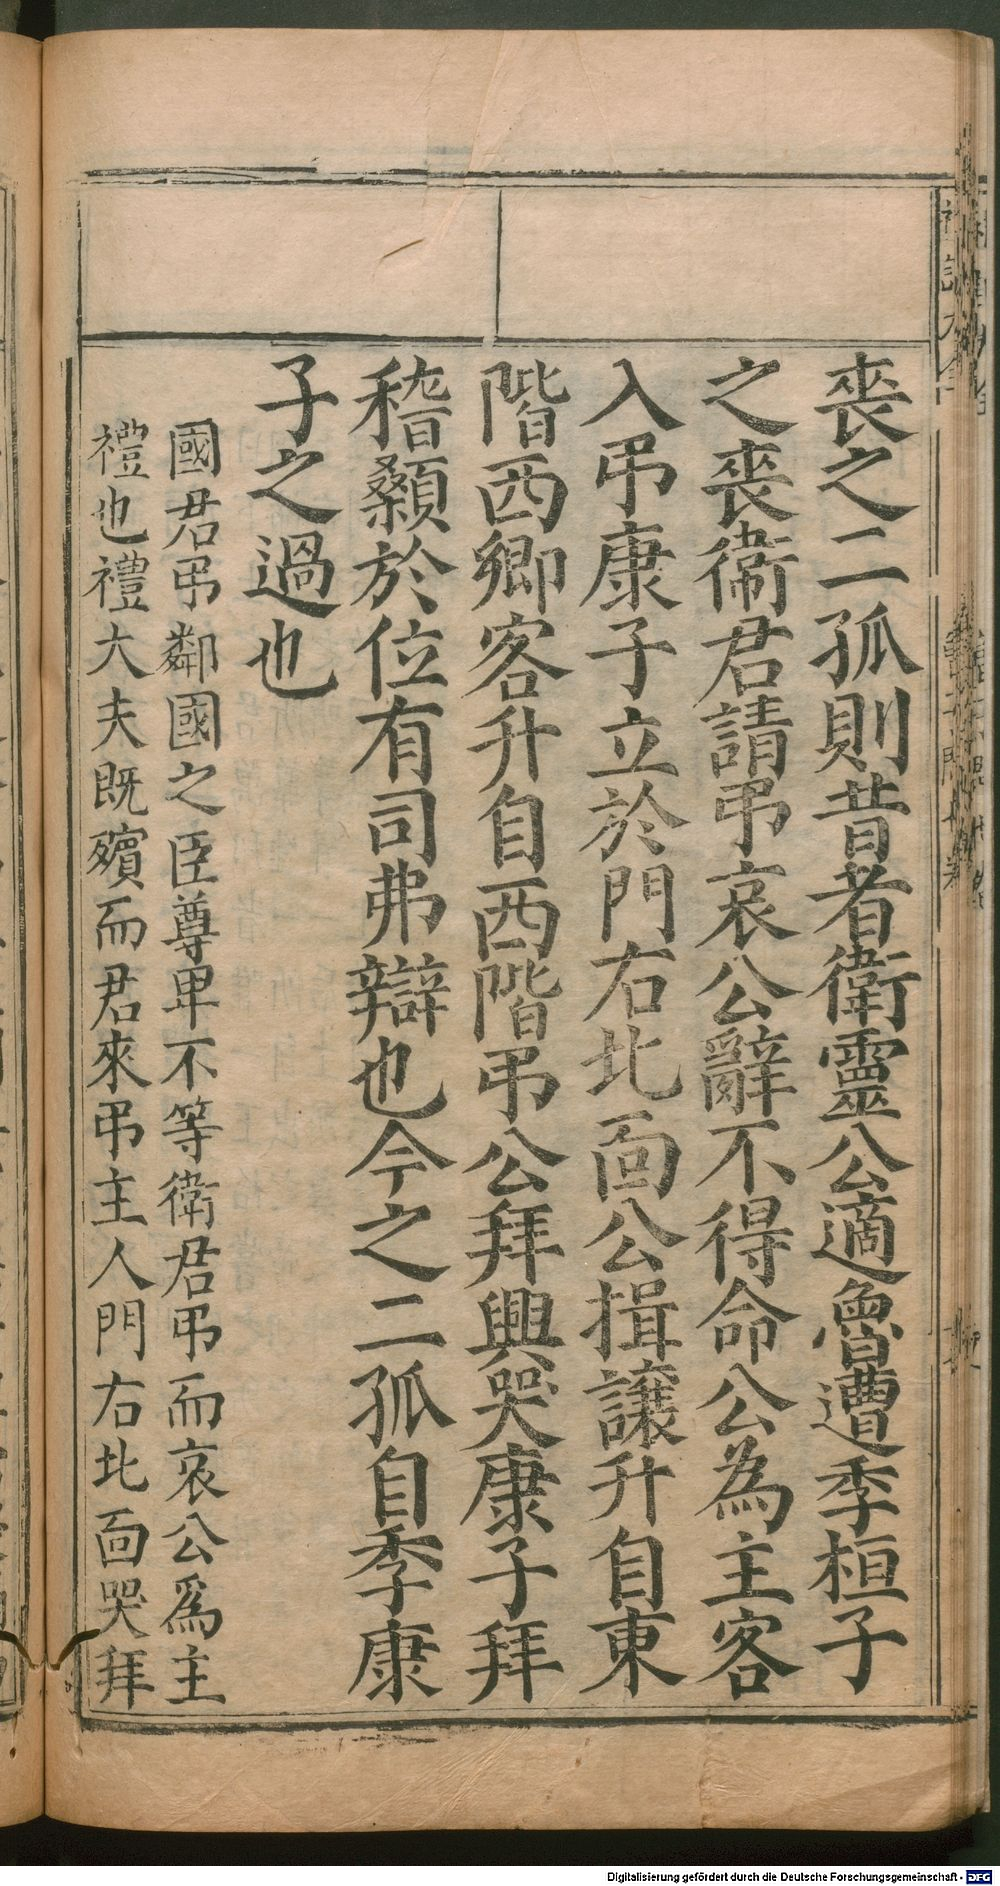 喪之二孤則昔者衛靈公適魯遭季桓子
之喪衛君請弔哀公辭不得命公為主客
入弔康子立於門右北面公揖讓升自東
階西鄉客升自西階弔公拜興哭康子拜
稽顙於位有司弗辯也今之二孤自季康
子之過也
國君弔鄰國之臣尊卑不等衛君弔而哀公爲主
禮也禮大夫既殯而君來弔主人門右北面哭拜
Digitalisierung gefördert durch die Deutsche Forschungsgemeinschaft - DFG